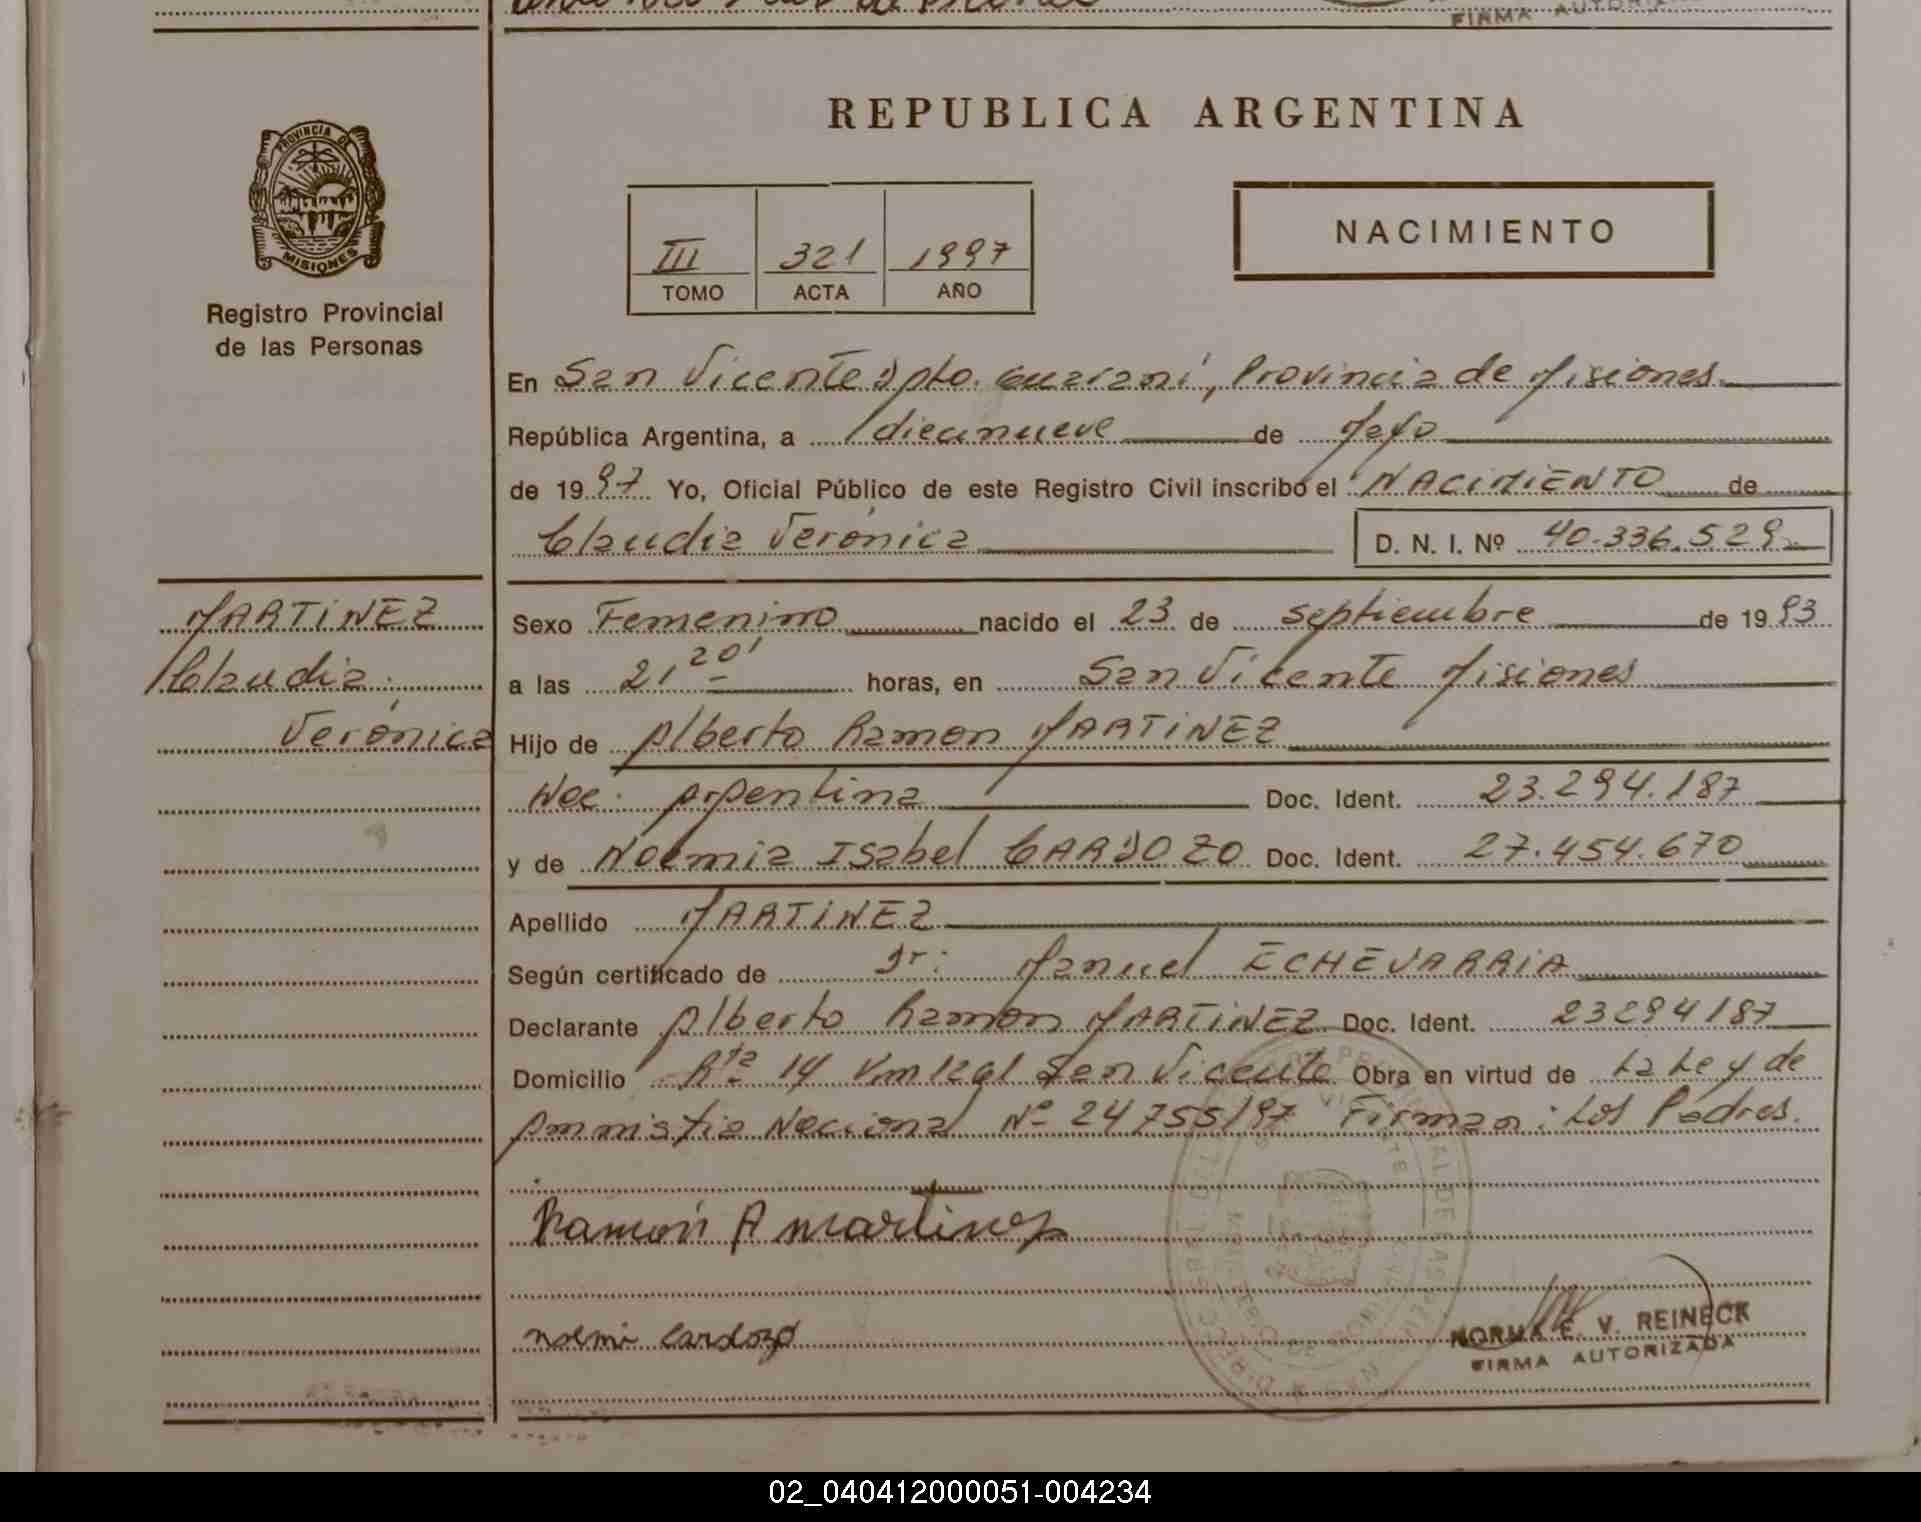 FIRMA AUTORIZADA
REPUBLICA ARGENTINA
PROVINCIA DE
MISIONES
Registro Provincial
de las Personas
III 321 1997
TOMO ACTA AÑO
NACIMIENTO
En San Vicente Dpto. Guaraní, Provincia de Misiones.
República Argentina, a diecinueve de Mayo
de 1997 Yo, Oficial Público de este Registro Civil inscribo el NACIMIENTO de
Claudia Verónica D. N. I. Nº 40.336.529
MARTINEZ
Claudia
Verónica
Sexo Femenino nacido el 23 de septiembre de 1993
a las 21,20' horas, en San Vicente Misiones
Hijo de Alberto Ramon MARTINEZ
Nac. Argentina Doc. Ident. 23.294.187
y de Noemia Isabel CARDOZO Doc. Ident. 27.454.670
Apellido MARTINEZ
Según certificado de Dr. Manuel ECHEVARRIA
Declarante Alberto Ramon MARTINEZ Doc. Ident. 23294187
Domicilio Rta 14 Km 1291 San Vicente Obra en virtud de La Ley de
Ammistia Nacional Nº 24755/97 Firman: Los Padres.
Ramón A martinez
noemi cardozo
NORMA E. V. REINECK
FIRMA AUTORIZADA
02_040412000051-004234